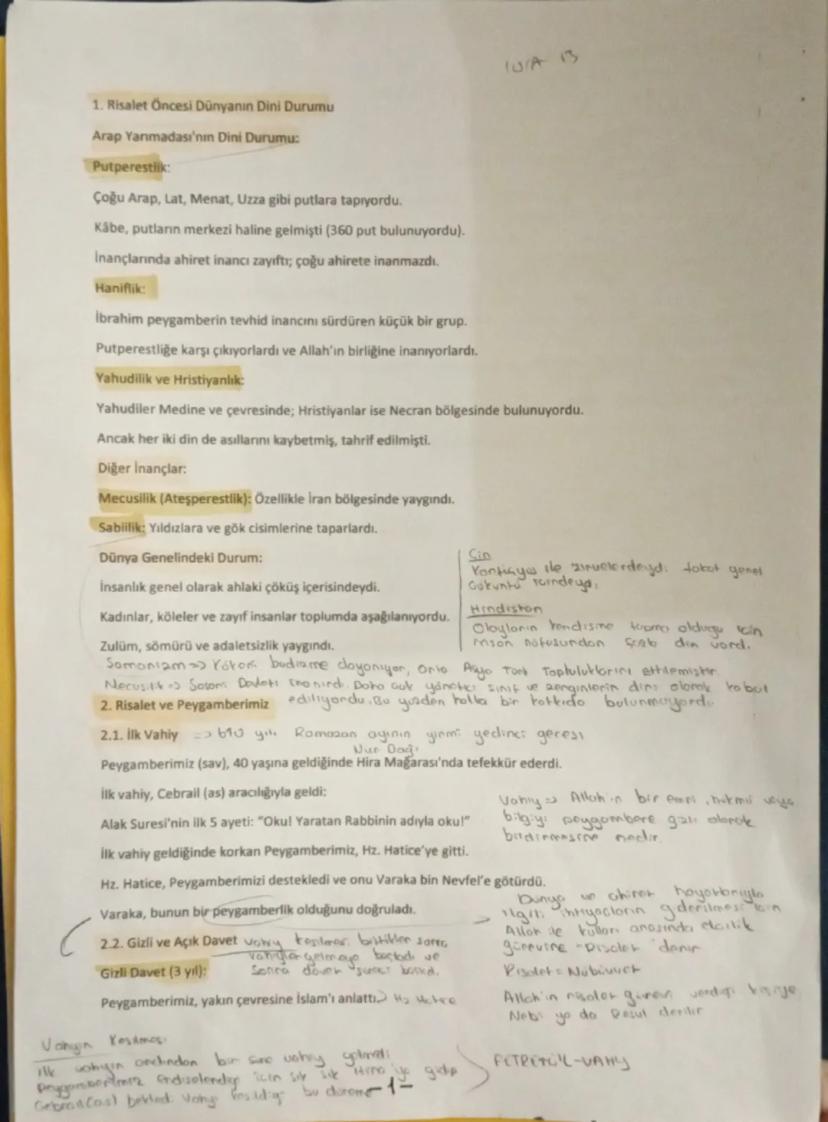 1. Risalet Öncesi Dünyanın Dini Durumu
Arap Yarımadası'nın Dini Durumu:
Putperestlik:
Çoğu Arap, Lat, Menat, Uzza gibi putlara tapıyordu.
Kâbe, putların merkezi haline gelmişti (360 put bulunuyordu).
İnançlarında ahiret inancı zayıftı; çoğu ahirete inanmazdı.
Haniflik:
İbrahim peygamberin tevhid inancını sürdüren küçük bir grup.
Putperestliğe karşı çıkıyorlardı ve Allah'ın birliğine inanıyorlardı.
Yahudilik ve Hristiyanlık:
Yahudiler Medine ve çevresinde; Hristiyanlar ise Necran bölgesinde bulunuyordu.
Ancak her iki din de asıllarını kaybetmiş, tahrif edilmişti.
Diğer İnançlar:
Mecusilik (Ateşperestlik): Özellikle İran bölgesinde yaygındı.
Sabiilik: Yıldızlara ve gök cisimlerine taparlardı.
Dünya Genelindeki Durum:
İnsanlık genel olarak ahlaki çöküş içerisindeydi.
Kadınlar, köleler ve zayıf insanlar toplumda aşağılanıyordu.
Zulüm, sömürü ve adaletsizlik yaygındı.
Çin
ile zirvelerdeydi fakat genel
çöküntü içindeydi.
Hindistan
Olayların kendisine olduğu için
insan nüfusundan din vardı.
Şamanizm => Kökeni budizme dayanıyor, Orta Asya Türk Topluluklarını etkilemiştir.
Mecusilik => Sasani Devleti Daha çok yönetici sınıf ve zenginlerin dini olarak kabul
ediliyordu. Bu yüzden halka bir katkıda bulunmuyordu.
2. Risalet ve Peygamberimiz
2.1. İlk Vahiy => 610 yılı Ramazan ayının yirmi yedinci gecesi
Nur Dağı
Peygamberimiz (sav), 40 yaşına geldiğinde Hira Mağarası'nda tefekkür ederdi.
İlk vahiy, Cebrail (as) aracılığıyla geldi:
Alak Suresi'nin ilk 5 ayeti: "Oku! Yaratan Rabbinin adıyla oku!"
İlk vahiy geldiğinde korkan Peygamberimiz, Hz. Hatice'ye gitti.
Hz. Hatice, Peygamberimizi destekledi ve onu Varaka bin Nevfel'e götürdü.
Varaka, bunun bir peygamberlik olduğunu doğruladı.
Vahiy => Allah'ın bir emri, hükmü veya
bilgiyi peygambere gizli olarak
bildirmesine denir.
Dünya ve ahiret hayatlarıyla
ilgili ihtiyaçların giderilmesi için
Allah ile kulları arasında elçilik
görevine Risalet denir
Risalet = Nübüvvet
Allah'ın risalet görevi verdiği kişiye
Nebi ya da Resul denilir
2.2. Gizli ve Açık Davet vahiy kesilmesi bittikten sonra
vahiyler gelmeye başladı ve
Gizli Davet (3 yıl): Sonra davet süreci başladı.
Peygamberimiz, yakın çevresine İslam'ı anlattı. Hz Hatice
Vahyin Kesilmesi
ilk vahyin ardından bir süre vahiy gelmedi
Peygamberimiz endişelendiği için sık sık Hira'ya gidip
Cebrail(as) bekledi. Vahyi kesildiği bu döneme
FETRETÜ'L-VAHY
-1-